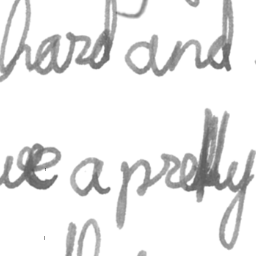 hard and
a pretty